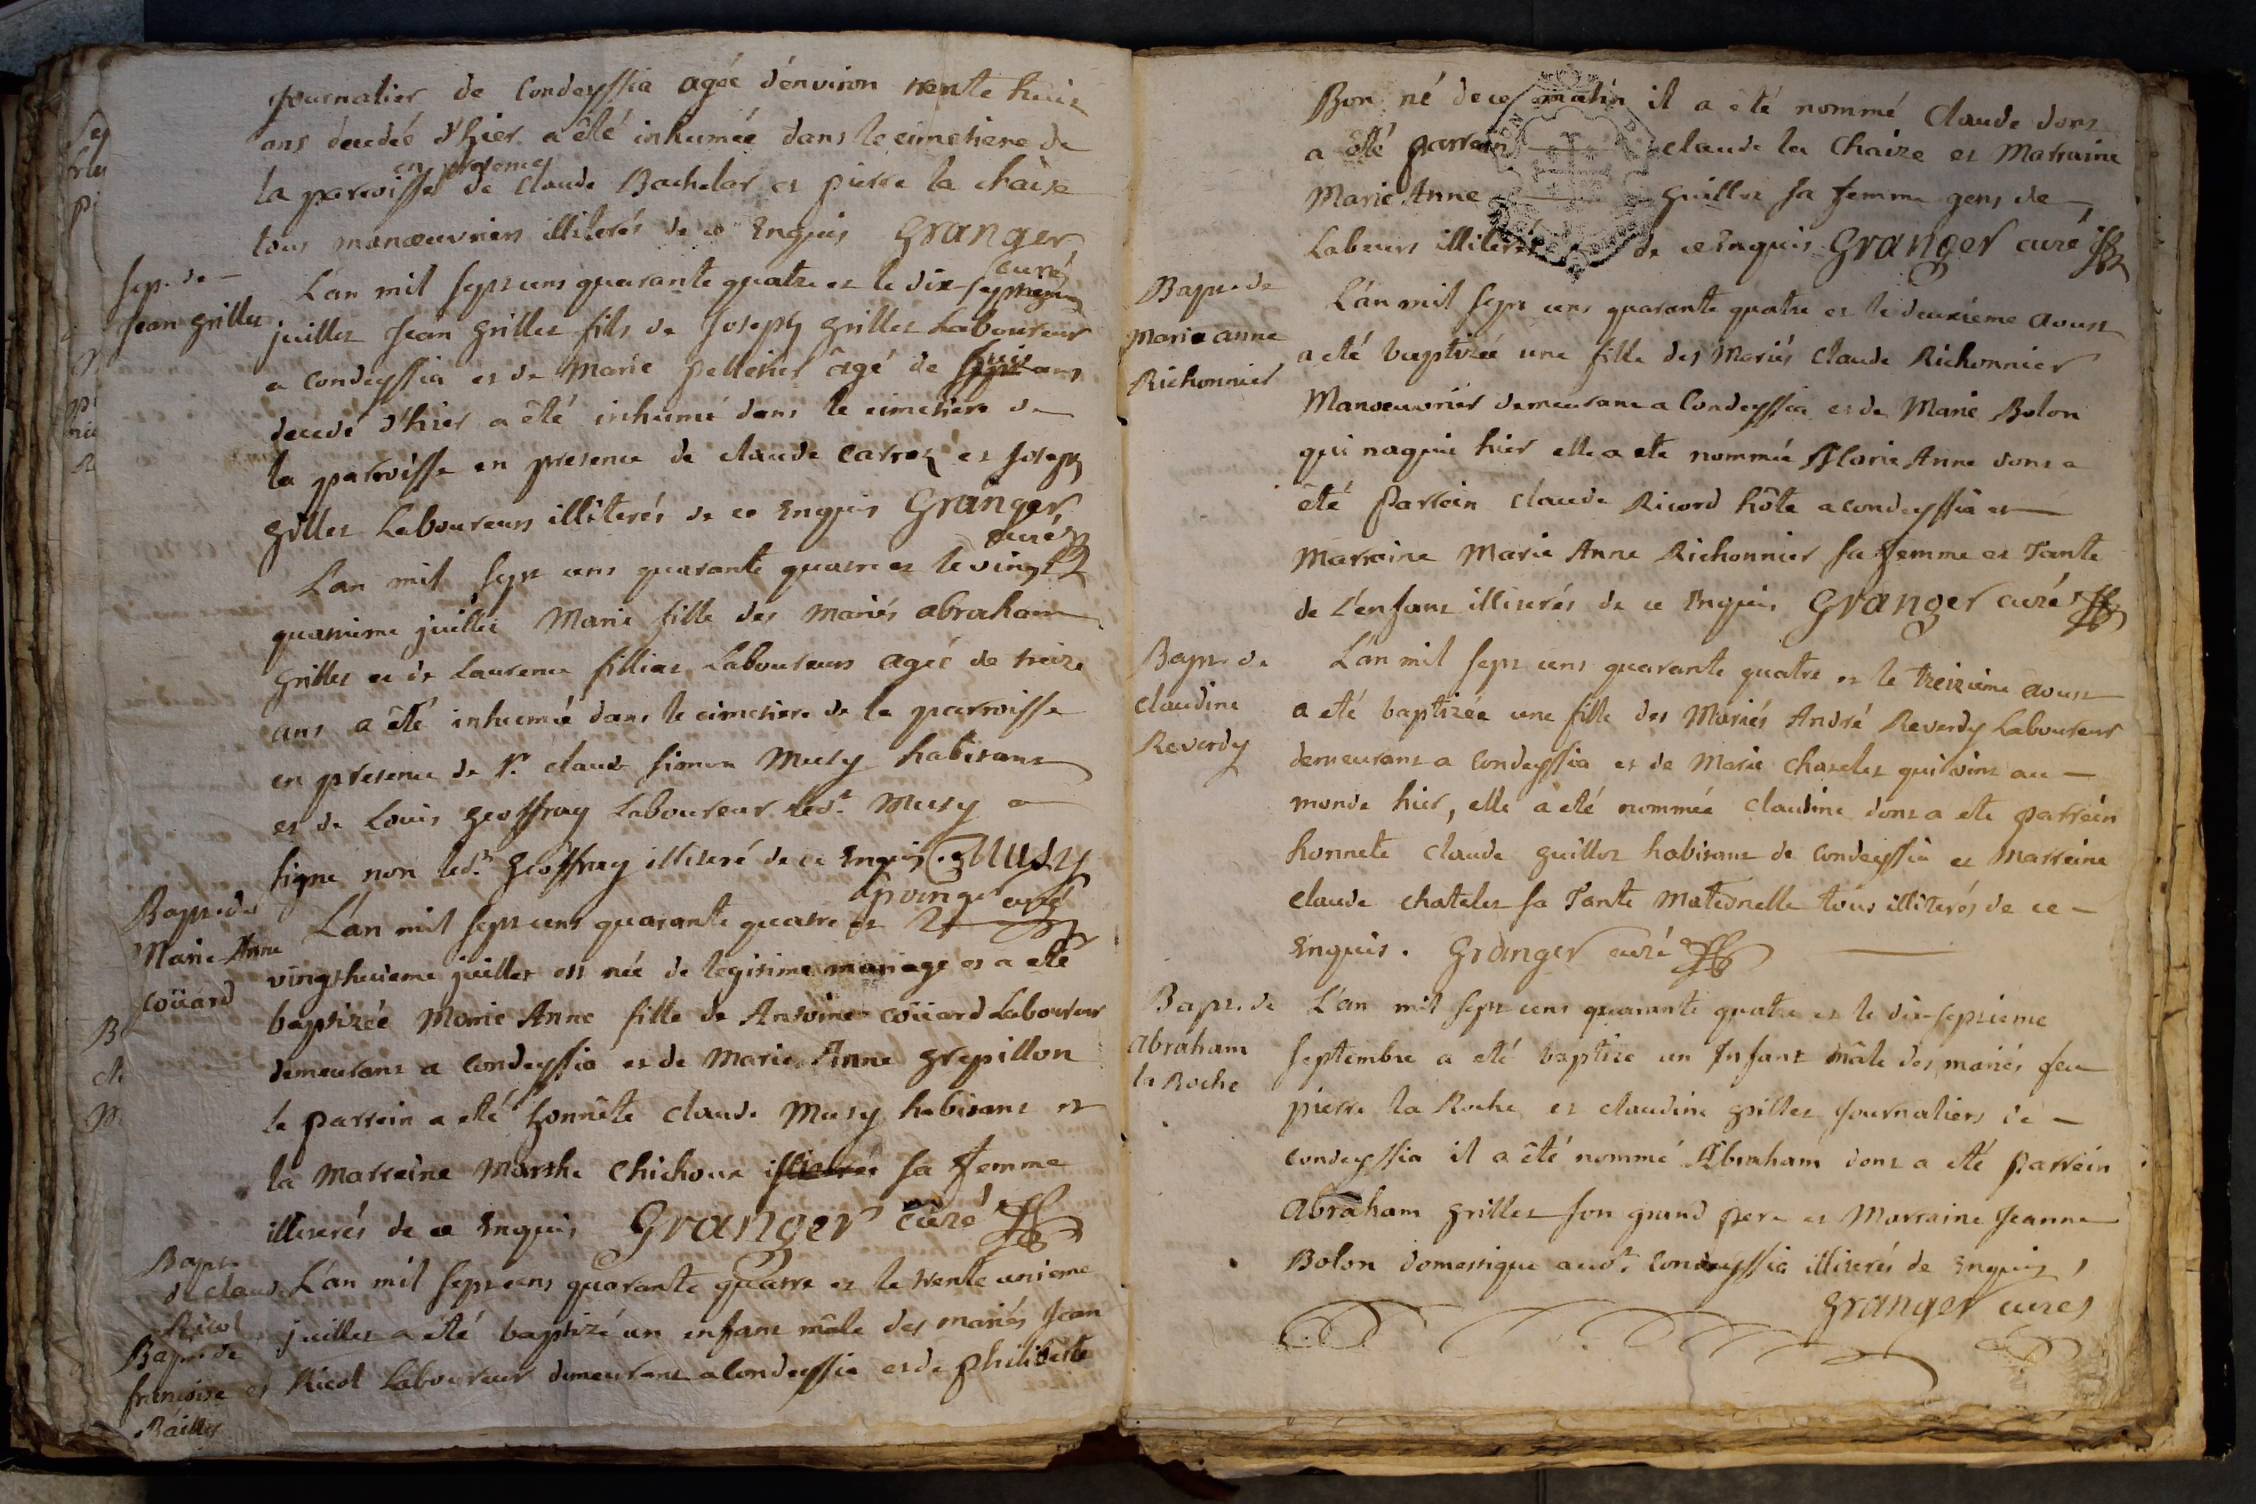 journalier de Condeyssia agée d'environ trente huit
ans decedée d'hier a êté inhumée dans le cimetiere de
en presence
la paroisse de Claude Bachelar et pierre la chaise
tous manoeuvriers illiterés de ce Enquis Granger
curé
Sep. de
Jean Grillet
L'an mil sept cens quarante quatre et le dix septieme
juillet Jean Grillet fils de Joseph Grillet Laboureur
a Condeyssia et de Marie pelletier âgé de huit ans
decedé d'hier a êté inhumé dans le cimetiere de
la paroisse en presence de claude Carroz et Joseph
Grillet Laboureurs illiterés de ce Enquis Granger
curé
L'an mil sept cens quarante quatre et le vingt
quatrieme juillet Marie fille des mariés abraham
Grillet et de Laurence filliat Laboureurs agée de treize
ans a êté inhumée dans le cimetiere de la paroisse
en presence de Sr. claude simon Musy habitant
et de Louis Geoffray Laboureur led.t Musy a
signé non led.t Geoffray illiteré de ce Enquis. Musy
curé
Bapt. de
Marie Anne
coüard
L'an mil sept cens quarante quatre et
vingt huitieme juillet est née de legitime mariage et a eté
baptizée Marie Anne fille de Antoine coüard Laboureur
demeurant a Condeyssia et de Marie Anne Grepillon
le parrein a eté honnête claude Musy habitant et
la Marreine Marthe Chichoux sa femme
illiterés de ce Enquis Granger curé
Bapt.
de claude
Ricol
L'an mil sept cens quarante quatre et le trente unieme
juillet a eté baptizé un enfant mâle des mariés Jean
Ricol Laboureur demeurant a Condeyssia et de philiberte
Bapt. de
francoise
Baillet
Bon né de ce matin il a êté nommé Claude dont
a êté parrein claude la Chaize et Marraine
Marie Anne Guillot sa femme gens de
Labeurs illiterés de ce Enquis Granger curé
Bapt. de
Marie anne
Richonnier
L'an mil sept cens quarante quatre et le deuxiéme aoust
a eté baptizée une fille des Mariés Claude Richonnier
Manoeuvrier demeurant a Condeyssia et de Marie Bolon
qui naquit hier elle a eté nommée Marie Anne dont a
êté Parrein Claude Ricord hôte a condeyssia et
Marraine Marie Anne Richonnier sa femme et Tante
de L'enfant illiterés de ce Enquis Granger curé
Bapt. de
claudine
Reverdy
L'an mil sept cens quarante quatre et le treizieme aoust
a eté baptizée une fille des Mariés André Reverdy Laboureur
demeurant a Condeyssia et de Marie chatelet qui vint au
monde hier, elle a eté nommée claudine dont a eté parrein
honnete claude Guillot habitant de Condeyssia et Marreine
claude chatelet sa Tante Maternelle tous illiterés de ce
Enquis. Granger curé
Bapt. de
Abraham
la Roche
L'an mil sept cens quarante quatre et le dix-septieme
septembre a eté baptizé un Enfant mâle des mariés feu
pierre la Roche et claudine Grillet Journaliers de
condeyssia il a êté nommé Abraham dont a eté parrein
Abraham Grillet son grand pere et Marraine Jeanne
Bolon domestique aud.t Condeyssia illiterés de Enquis,
Granger curé